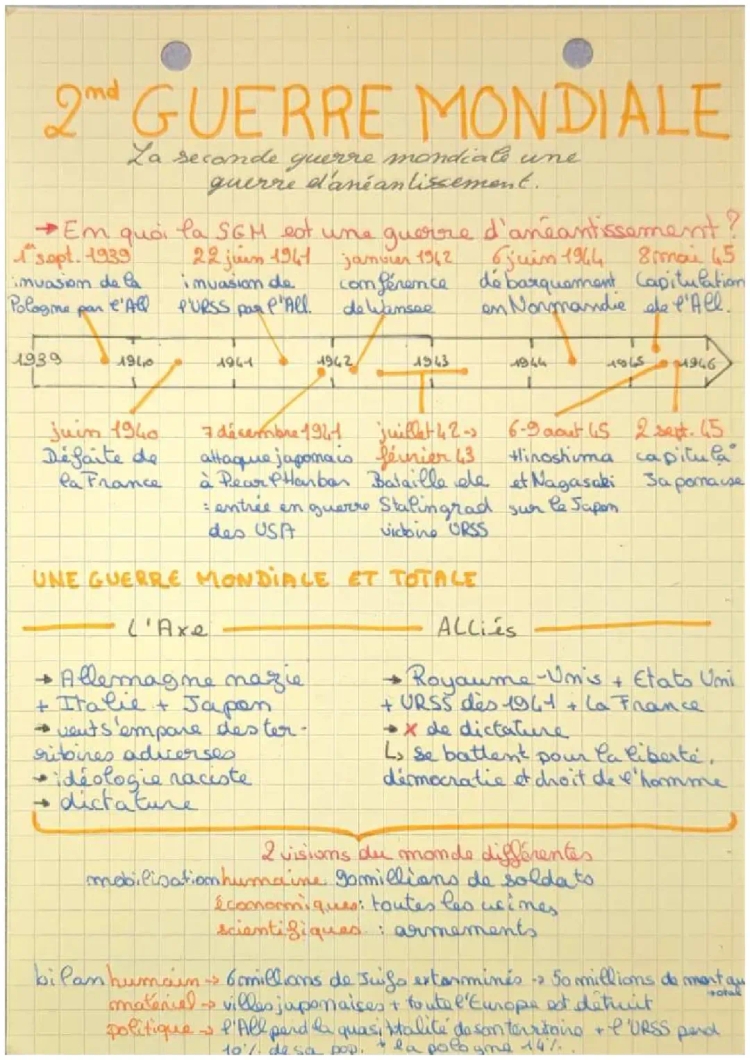 2nd GUERRE MONDIALE
La seconde guerre mondiale une
guerre d'anéantissement.
→ En quoi la SGM est une guerre d'anéantissement ?
1er sept. 1939 22 juin 1941 janvier 1942 6 juin 1944 8 mai 45
invasion de la invasion de conférence débarquement Capitulation
Pologne par l'All l'URSS par l'All. de Wansee en Normandie de l'All.
1939 1940 1941 1942 1943 1944 1945 1946
juin 1940 7 décembre 1941 juillet 42-> 6-9 aout 45 2 sept. 45
Défaite de attaque japonais février 43 Hiroshima capitula°
la France à Pearl Harbor Bataille de et Nagasaki Japonaise
: entrée en guerre Stalingrad sur le Japon
des USA victoire URSS
UNE GUERRE MONDIALE ET TOTALE
L'Axe ALLiés
→ Allemagne nazie → Royaume-Unis + Etats Uni
+ Italie + Japon + URSS dès 1941 + La France
→ veut s'empare des ter- → X de dictature
ritoires adverses ↳ se battent pour la liberté,
→ idéologie raciste démocratie et droit de l'homme
→ dictature
2 visions du monde différentes
mobilisation humaine 90millions de soldats
économiques: toutes les usines
scientifiques : armements
bilan humain → 6 millions de Juifs exterminés → 50 millions de mort au
total
matériel → villes japonaises + toute l'Europe est détruit
politique → l'All perd la quasi totalité de son territoire + l'URSS perd
10% de sa pop. + la pologne 14%.